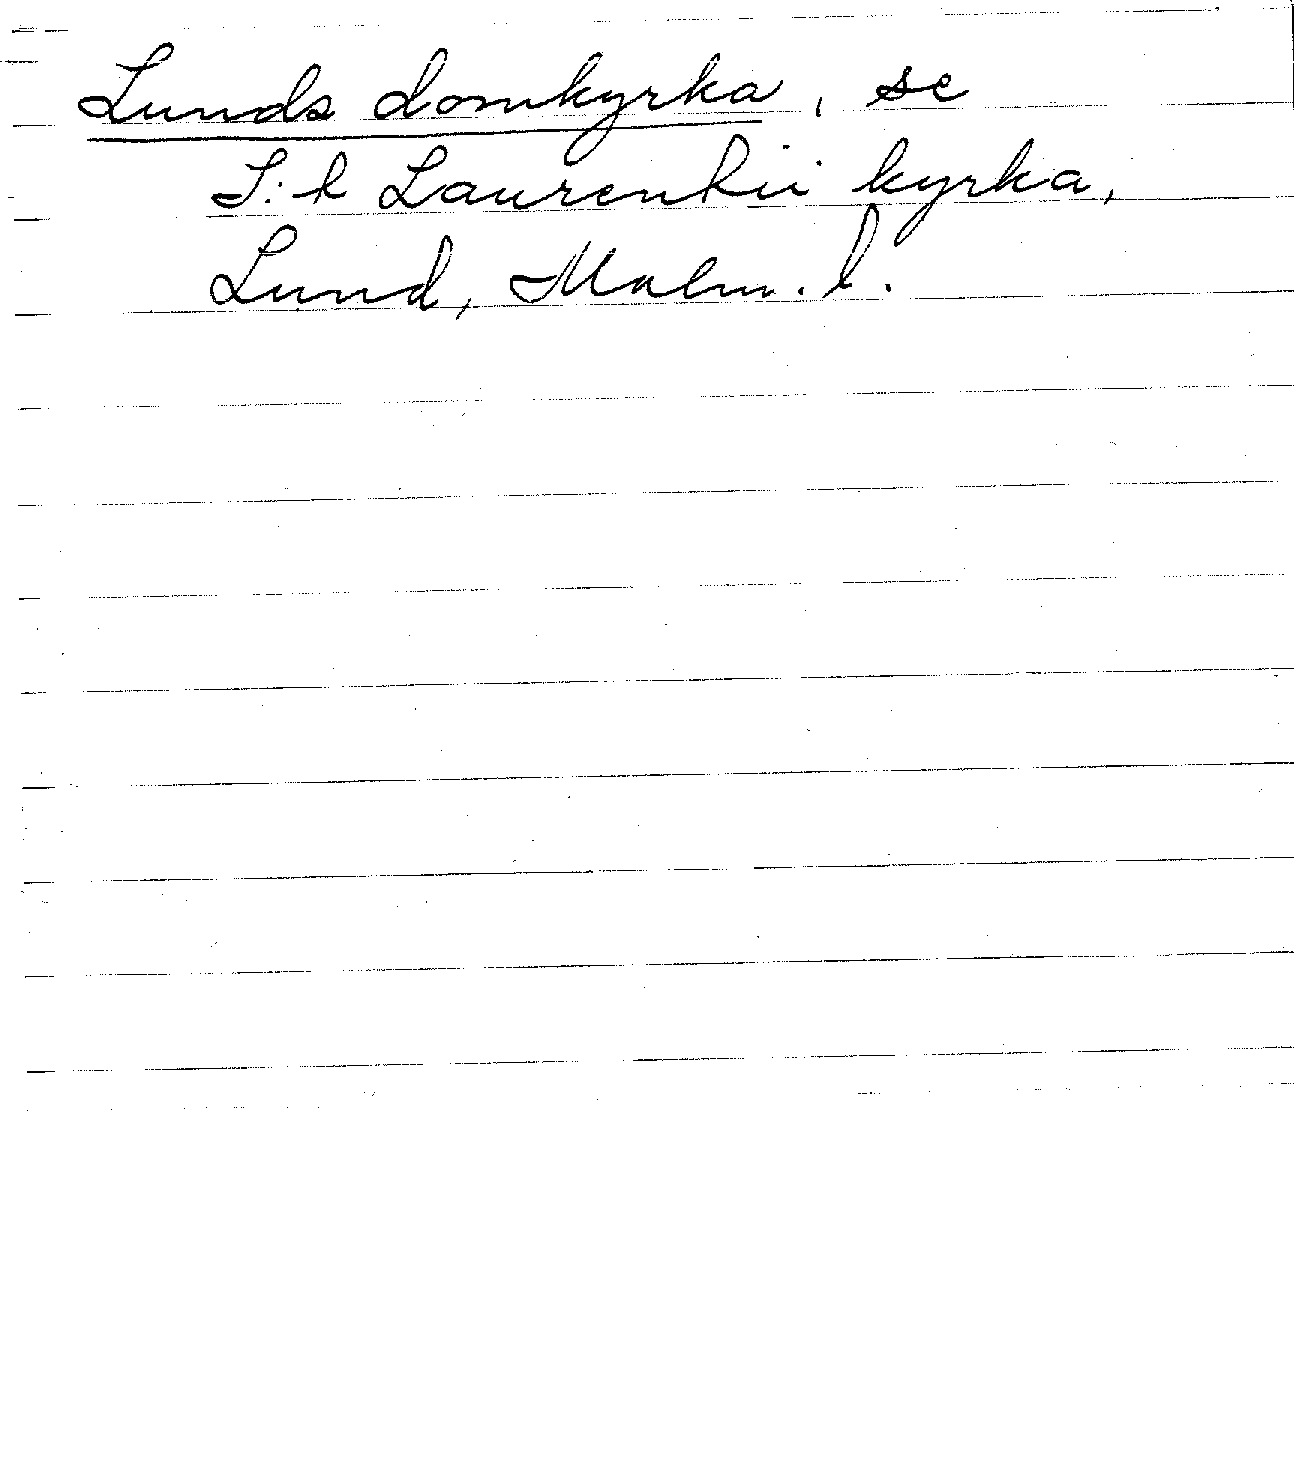 Lunds domkyrka, se
S:t Laurentii kyrka,
Lund, Malm. l.